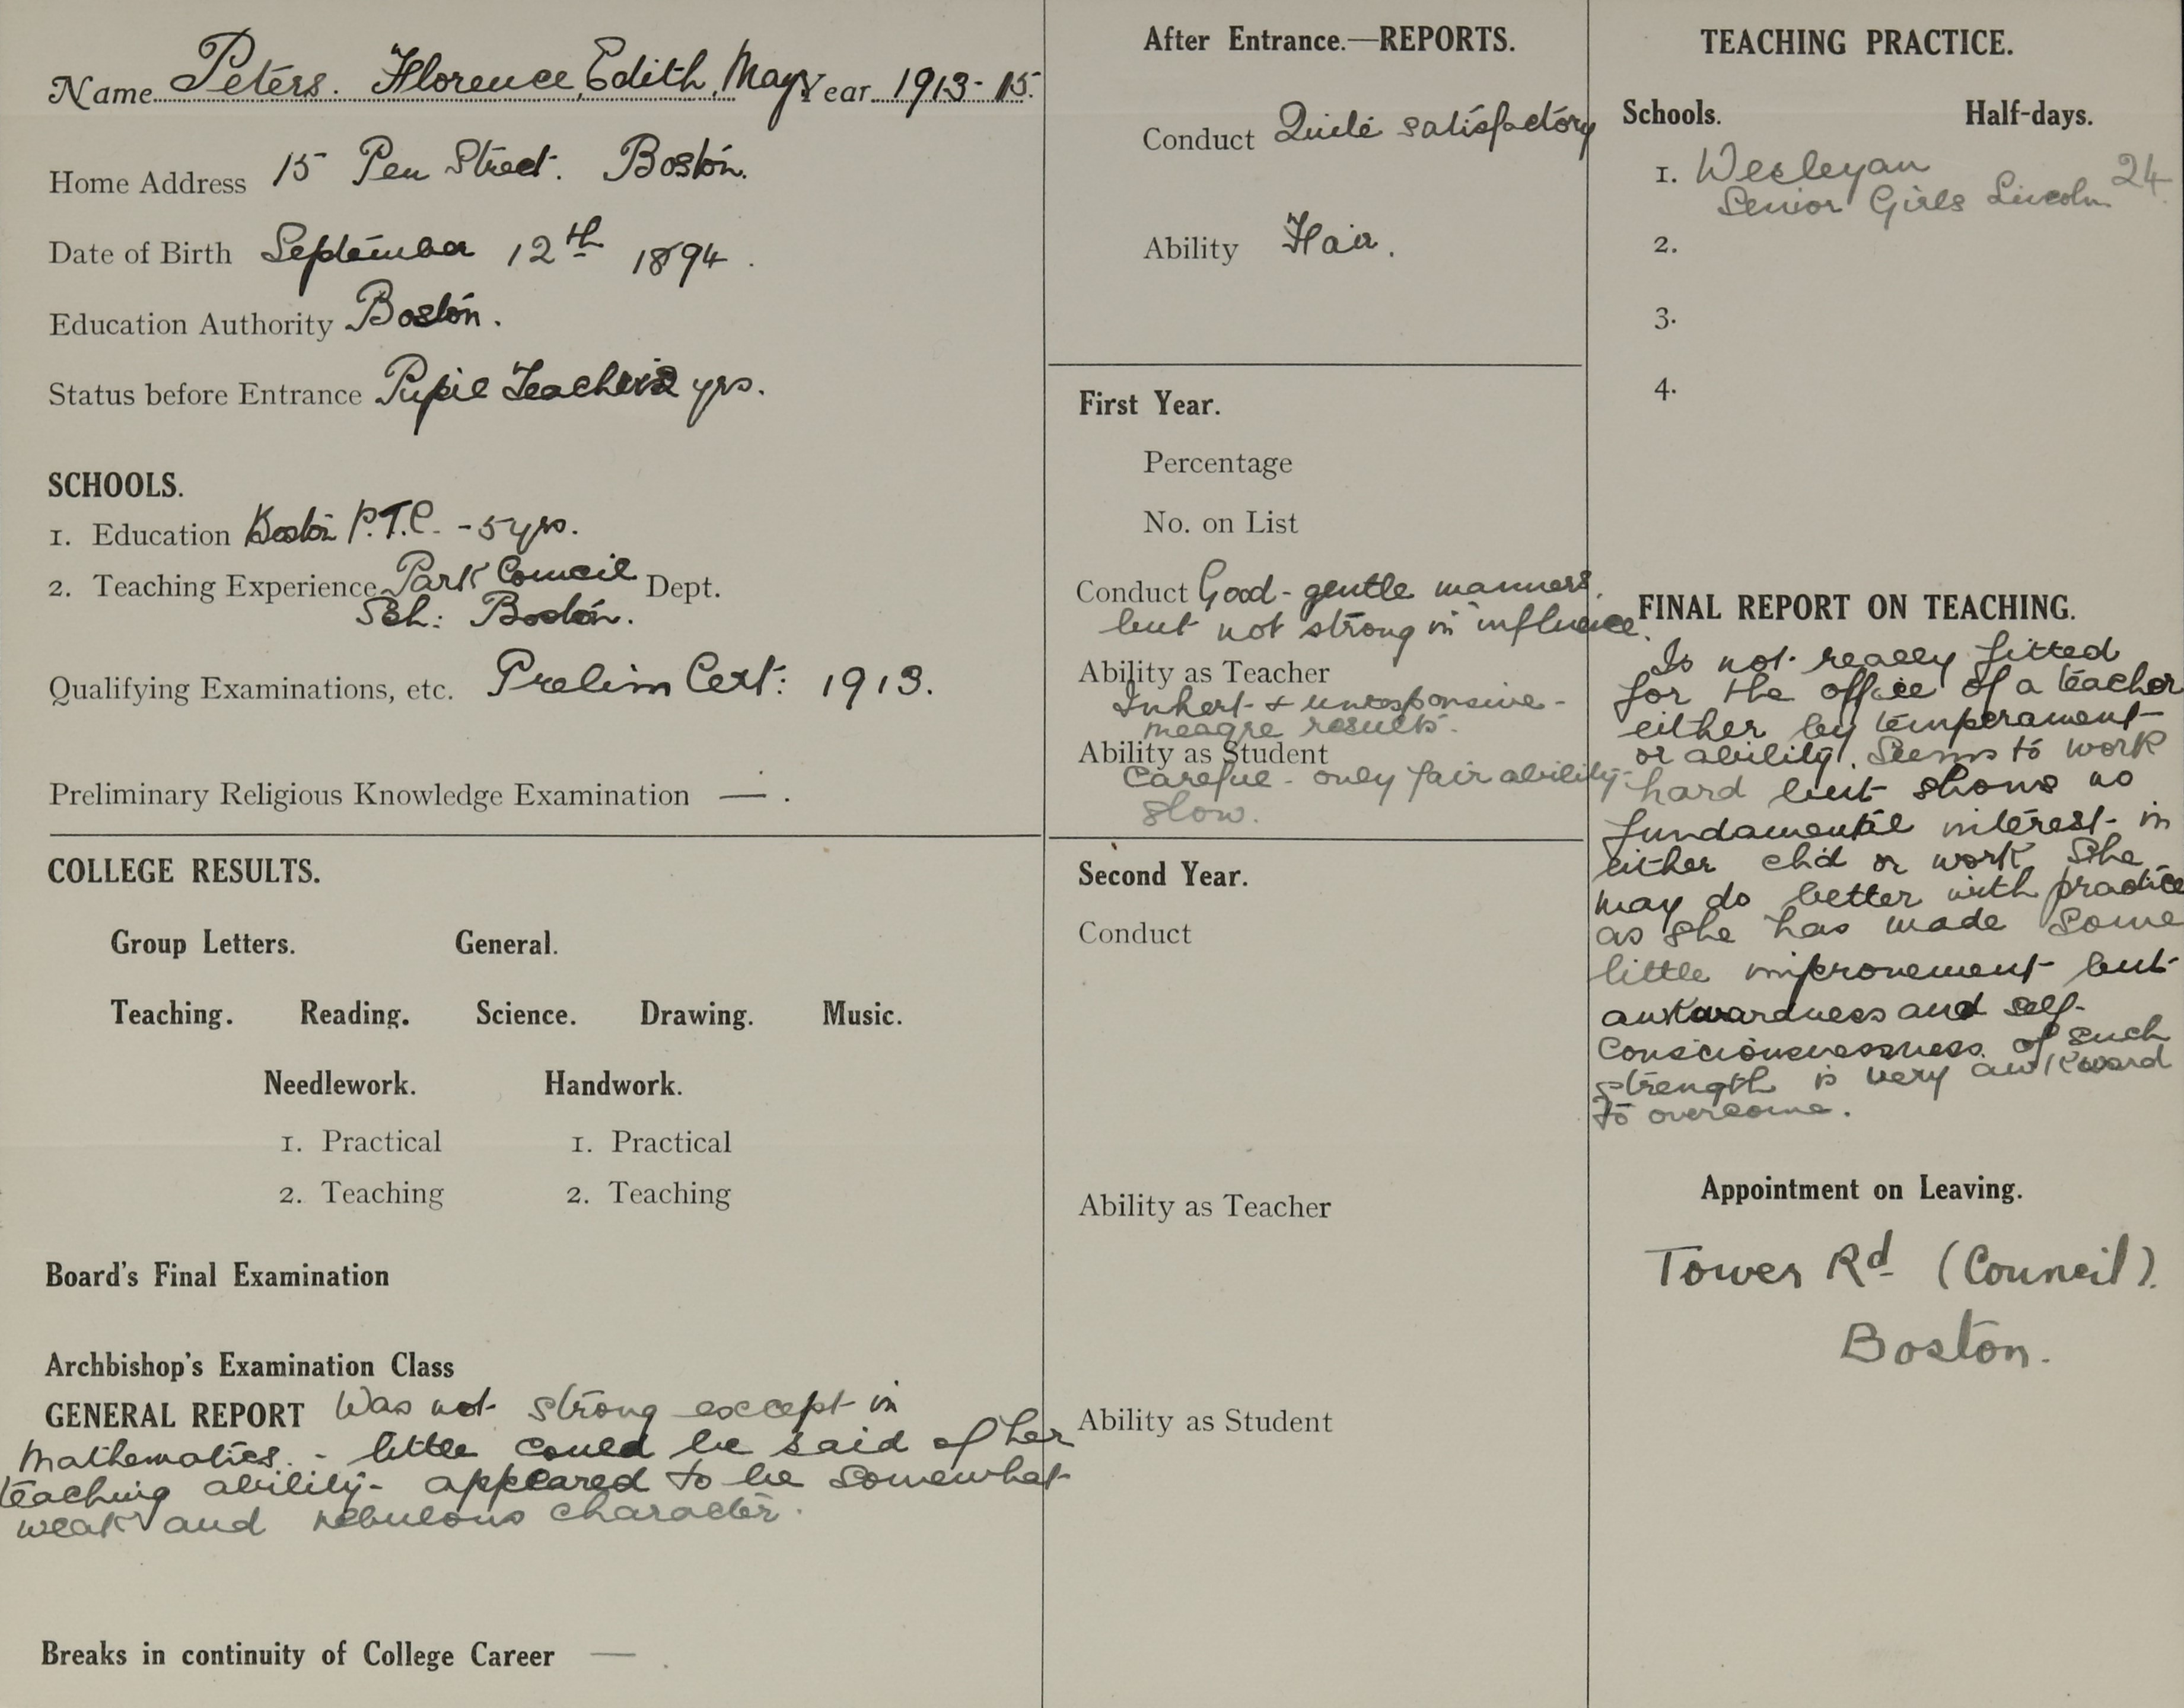 Name Peters. Florence, Edith, May Year 1913-15.
Home Address 15 Pen Street. Boston.
Date of Birth September 12th 1894.
Education Authority Boston.
Status before Entrance Pupil Teacher 2 yrs.
SCHOOLS.
1. Education Boston P.T.C. - 5 yrs.
2. Teaching Experience Park Council Dept.
Sch: Boston.
Qualifying Examinations, etc. Prelim Cert: 1913.
Preliminary Religious Knowledge Examination — .
COLLEGE RESULTS.
Group Letters. General.
Teaching. Reading. Science. Drawing. Music.
Needlework. Handwork.
1. Practical 1. Practical
2. Teaching 2. Teaching
Board's Final Examination
Archbishop's Examination Class
GENERAL REPORT Was not strong except in
Mathematics. - little could be said of her
teaching ability - appeared to be somewhat
weak and nebulous character.
Breaks in continuity of College Career — .
After Entrance.—REPORTS.
Conduct Quite satisfactory
Ability Fair.
First Year.
Percentage
No. on List
Conduct Good - gentle manners,
but not strong in influence.
Ability as Teacher
Inhert & unresponsive -
meagre results.
Ability as Student
Careful - only fair ability -
slow.
Second Year.
Conduct
Ability as Teacher
Ability as Student
TEACHING PRACTICE.
Schools. Half-days.
1. Wesleyan
Senior Girls Lincoln 24.
2.
3.
4.
FINAL REPORT ON TEACHING.
Is not really fitted
for the office of a teacher
either by temperament
or ability. Seems to work
hard but shows no
fundamental interest in
either chd or work. She
may do better with practice
as she has made some
little improvement but
awkwardness and self-
consciousness of such
strength is very awkward
to overcome.
Appointment on Leaving.
Tower Rd (Council).
Boston.